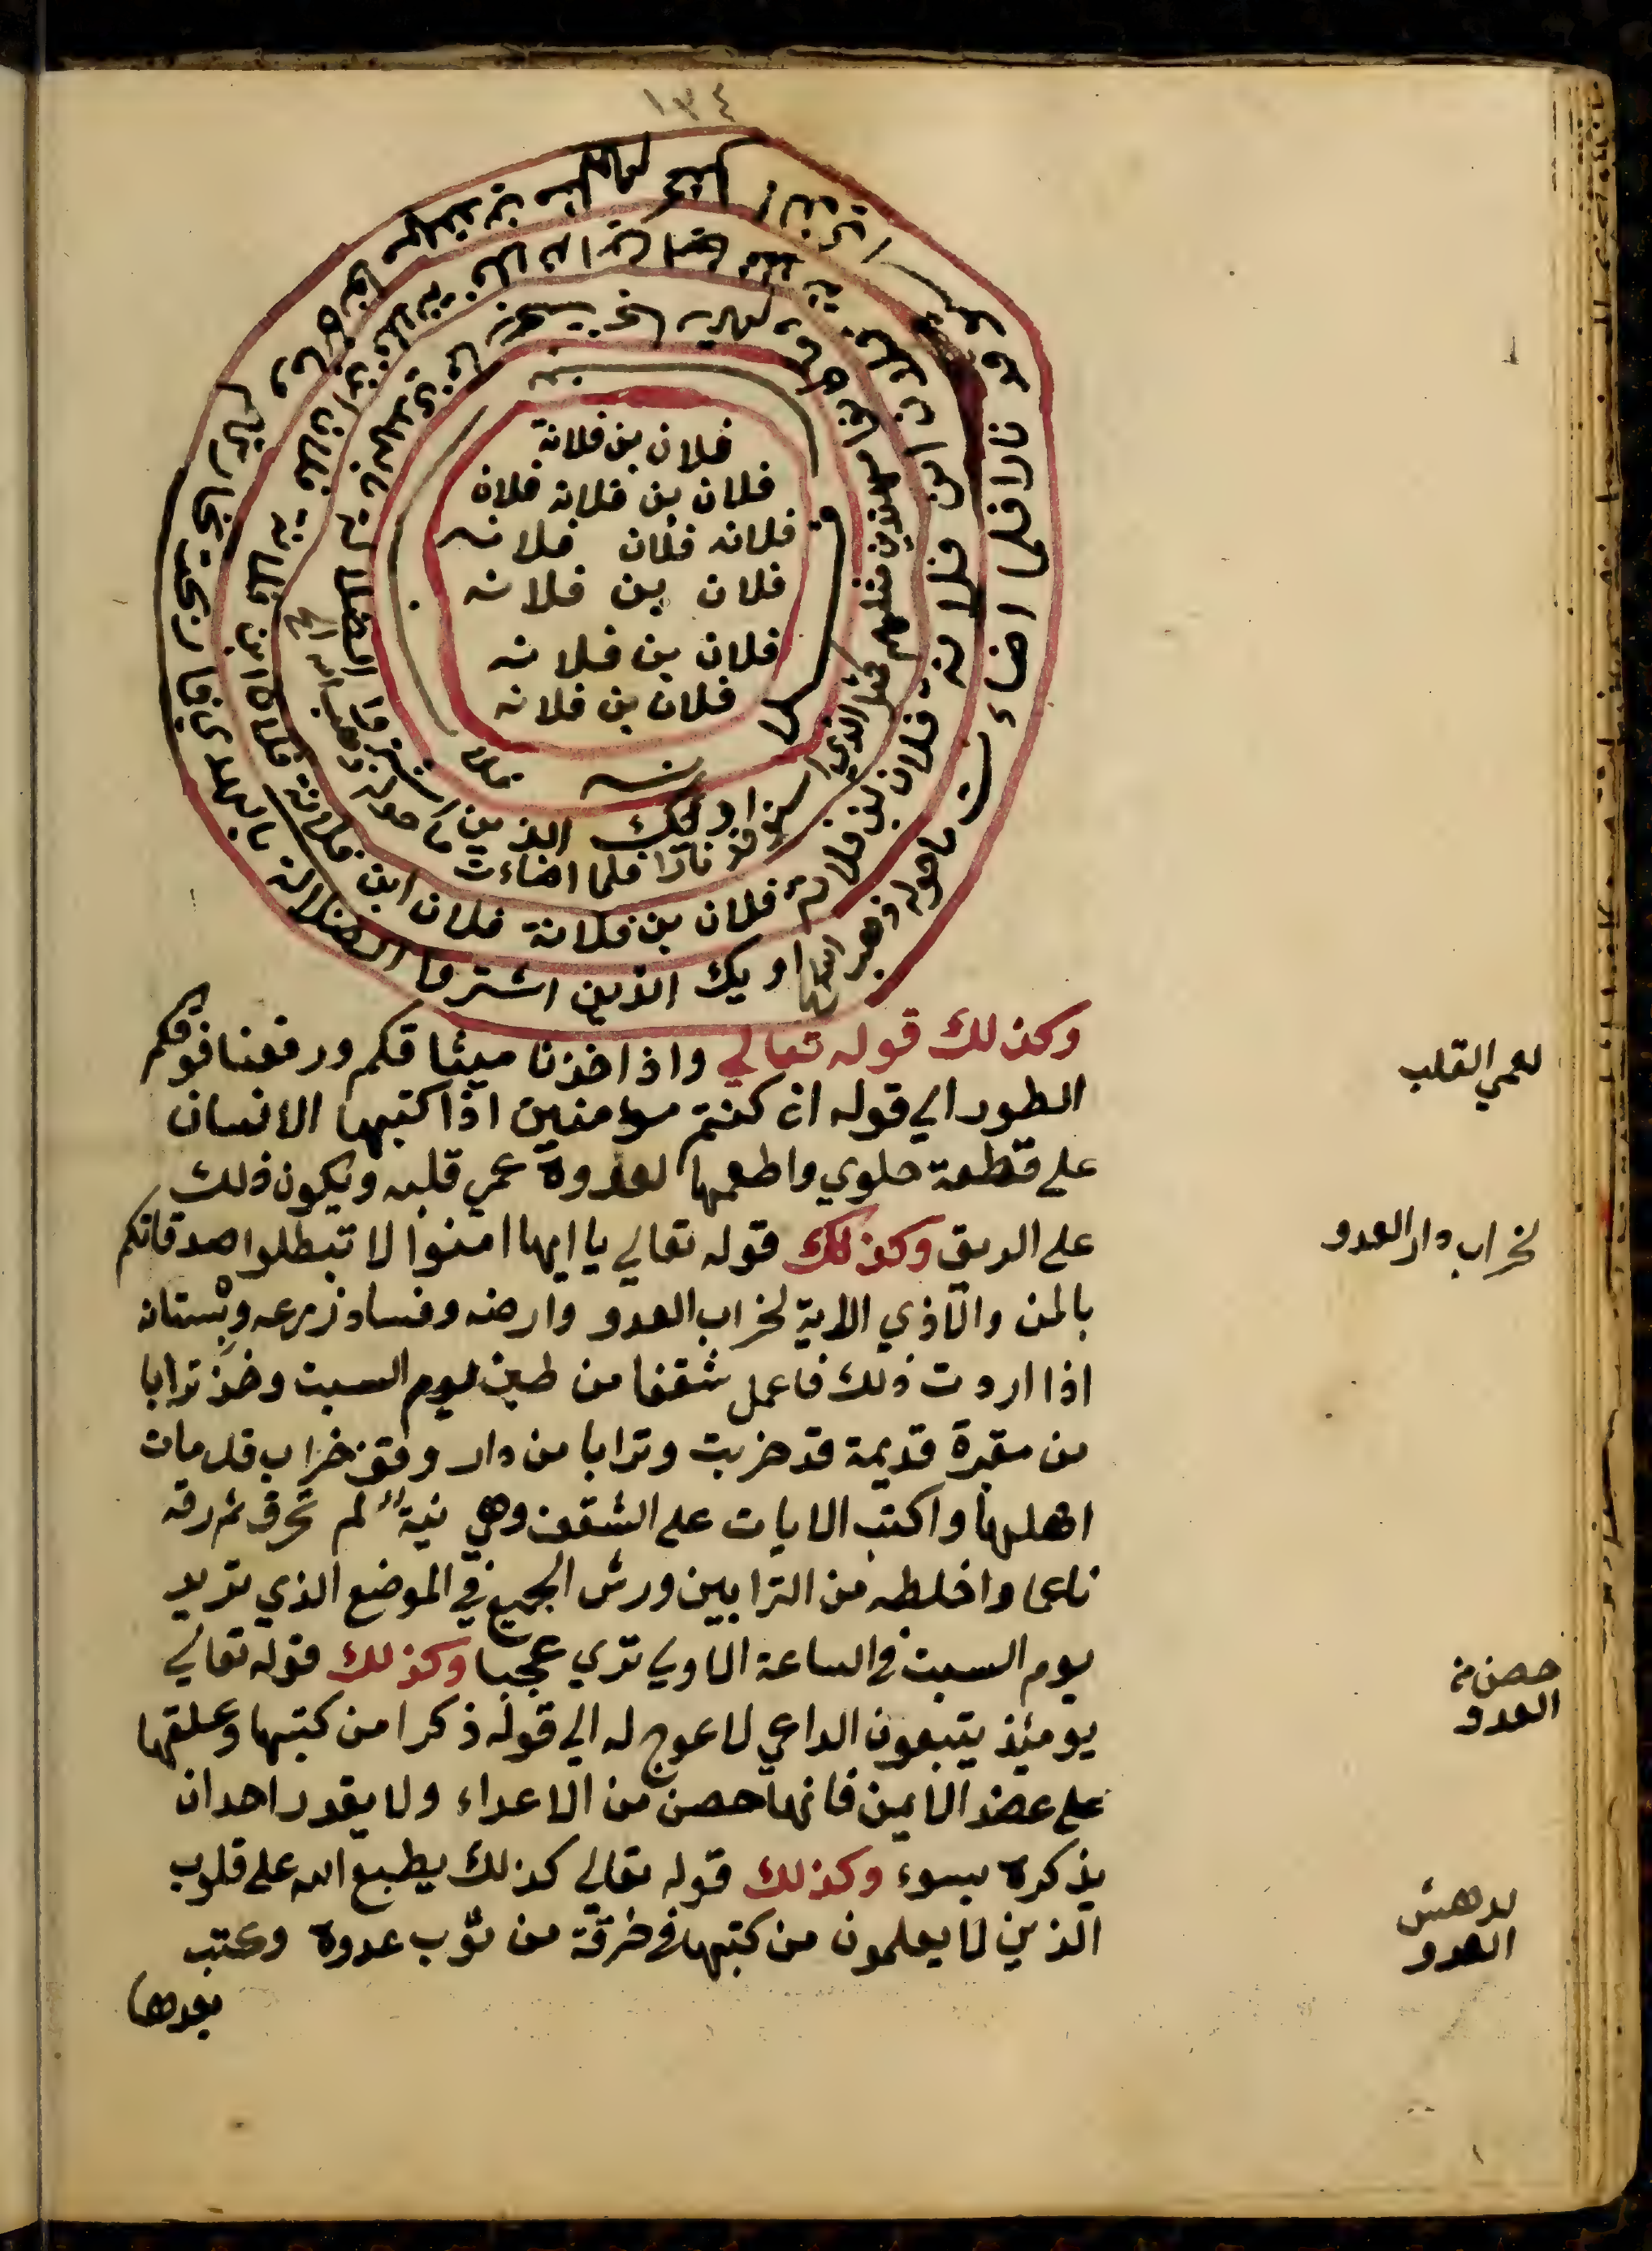 ١٣٤
فلان بن فلانة
فلان بن فلانه فلان
فلانه فلان فلانه
فلان بن فلانه
فلان بن فلانه
فلان بن فلانه
اوليك الذين اشتروا الضلالة بالهدي فما ربحت تجارتهم وما كانوا مهتدين مثلهم كمثل الذي استوقد نارا فلما اضاءت ما حوله ذهب الله
فلان بن فلانة فلان ابن فلانة
اوليك الذين اشتروا الضلالة بالهدي
نارا فلما اضاءت ما حوله ذهب الله
وكذلك قوله تعالي واذ اخذنا ميثاقكم ورفعنا فوقكم
لعمي القلب
الطور الي قوله ان كنتم مومنين اذا كتبها الانسان
علي قطعة حلوي واطعمها لعدوه عمي قلبه ويكون ذلك
علي الريق وكذلك قوله تعالي يا ايها امنوا لا تبطلوا صدقاتكم
لخراب دار العدو
بالمن والاذي الاية لخراب العدو وارضه وفساد زرعه وبستانه
اذا اردت ذلك فاعمل شقفا من طين يوم السبت وخذ ترابا
من مقبرة قديمة قد خربت وترابا من دار وقف خراب قد مات
اهلها واكتب الايات علي الشقف وهي نية لم تحرق ثم دقه
ناعما واخلطه من الترابين ورش الجميع في الموضع الذي تريد
يوم السبت في الساعة الاولي تري عجبا وكذلك قوله تعالي
حصن من
العدو
يومئذ يتبعون الداعي لا عوج له الي قوله ذكرا من كتبها وعلقها
علي عضد الايمن فانها حصن من الاعداء ولا يقدر احد ان
يذكره بسوء وكذلك قوله تعالي كذلك يطبع الله علي قلوب
لدهش
العدو
الذين لا يعلمون من كتبها في خرقة من ثوب عدوه وكتب
بعدها